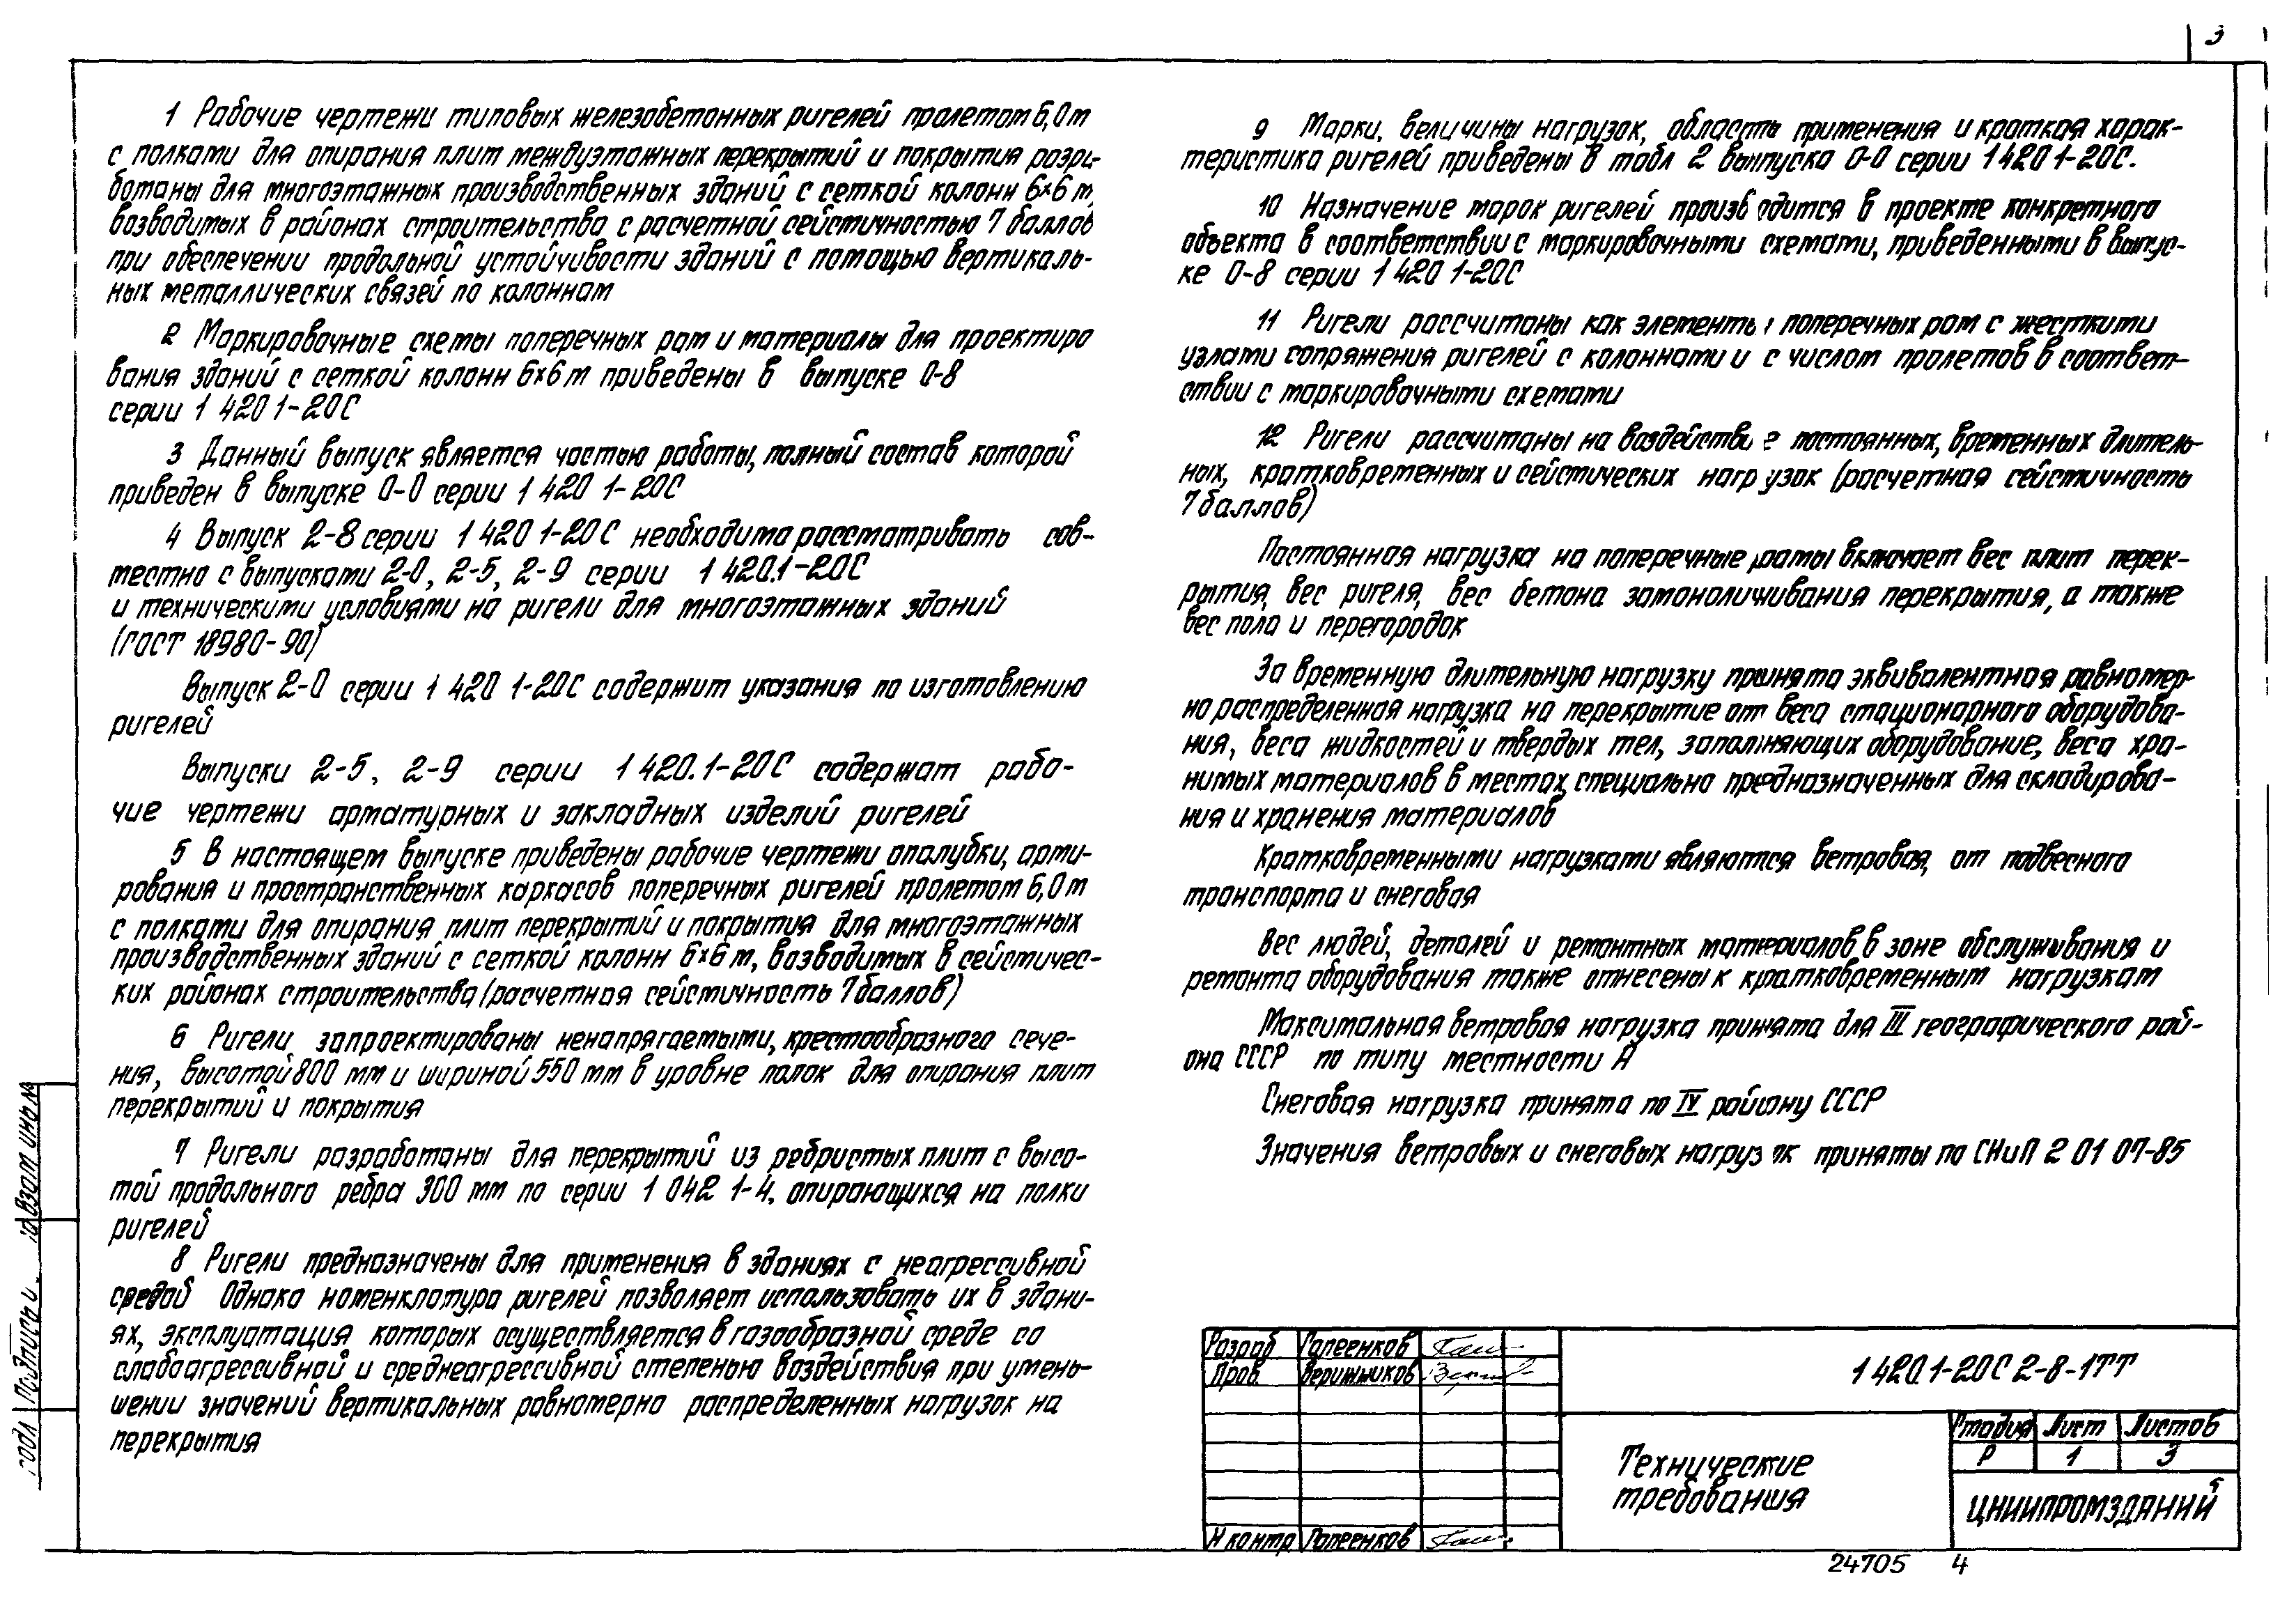 3
1 Рабочие чертежи типовых железобетонных ригелей пролетом 6,0 м
с полками для опирания плит междуэтажных перекрытий и покрытия разра-
ботаны для многоэтажных производственных зданий с сеткой колонн 6×6 м,
возводимых в районах строительства с расчетной сейсмичностью 7 баллов
при обеспечении продольной устойчивости зданий с помощью вертикаль-
ных металлических связей по колоннам
2 Маркировочные схемы поперечных рам и материалы для проектиро
вания зданий с сеткой колонн 6×6 м приведены в выпуске 0-8
серии 1 420 1-20С
3 Данный выпуск является частью работы, полный состав которой
приведен в выпуске 0-0 серии 1 420 1-20С
4 Выпуск 2-8 серии 1 420 1-20С необходимо рассматривать сов-
местно с выпусками 2-0, 2-5, 2-9 серии 1 420.1-20С
и техническими условиями на ригели для многоэтажных зданий
(ГОСТ 18980-90)
Выпуск 2-0 серии 1 420 1-20С содержит указания по изготовлению
ригелей
Выпуски 2-5, 2-9 серии 1 420.1-20С содержат рабо-
чие чертежи арматурных и закладных изделий ригелей
5 В настоящем выпуске приведены рабочие чертежи опалубки, арми-
рования и пространственных каркасов поперечных ригелей пролетом 6,0 м
с полками для опирания плит перекрытий и покрытия для многоэтажных
производственных зданий с сеткой колонн 6×6 м, возводимых в сейсмичес-
ких районах строительства (расчетная сейсмичность 7 баллов)
6 Ригели запроектированы ненапрягаемыми, крестообразного сече-
ния, высотой 800 мм и шириной 550 мм в уровне полок для опирания плит
перекрытий и покрытия
7 Ригели разработаны для перекрытий из ребристых плит с высо-
той продольного ребра 300 мм по серии 1 042 1-4, опирающихся на полки
ригелей
8 Ригели предназначены для применения в зданиях с неагрессивной
средой Однако номенклатура ригелей позволяет использовать их в здани-
ях, эксплуатация которых осуществляется в газообразной среде со
слабоагрессивной и среднеагрессивной степенью воздействия при умень-
шении значений вертикальных равномерно распределенных нагрузок на
перекрытия
9 Марки, величины нагрузок, область применения и краткая харак-
теристика ригелей приведены в табл 2 выпуска 0-0 серии 1 420 1-20С.
10 Назначение марок ригелей производится в проекте конкретного
объекта в соответствии с маркировочными схемами, приведенными в выпус-
ке 0-8 серии 1 420 1-20С
11 Ригели рассчитаны как элементы поперечных рам с жесткими
узлами сопряжения ригелей с колоннами и с числом пролетов в соответ-
ствии с маркировочными схемами
12 Ригели рассчитаны на воздействие постоянных, временных длитель-
ных, кратковременных и сейсмических нагрузок (расчетная сейсмичность
7 баллов)
Постоянная нагрузка на поперечные рамы включает вес плит перек-
рытия, вес ригеля, вес бетона замоноличивания перекрытия, а также
вес пола и перегородок
За временную длительную нагрузку принята эквивалентная равномер-
но распределенная нагрузка на перекрытие от веса стационарного оборудова-
ния, веса жидкостей и твердых тел, заполняющих оборудование, веса хра-
нимых материалов в местах, специально предназначенных для складирова-
ния и хранения материалов
Кратковременными нагрузками являются ветровая, от подвесного
транспорта и снеговая
Вес людей, деталей и ремонтных материалов в зоне обслуживания и
ремонта оборудования также отнесены к кратковременным нагрузкам
Максимальная ветровая нагрузка принята для III географического рай-
она СССР по типу местности А
Снеговая нагрузка принята по IV району СССР
Значения ветровых и снеговых нагрузок приняты по СНиП 2 01 07-85
Взам инв №
Подпись и
подл
Разраб Гапеенков
Пров. Верижников
Н контр Гапеенков
1 420.1-20С 2-8-1ТТ
Технические
требования
Стадия Лист Листов
Р 1 3
ЦНИИПРОМЗДАНИЙ
24705 4